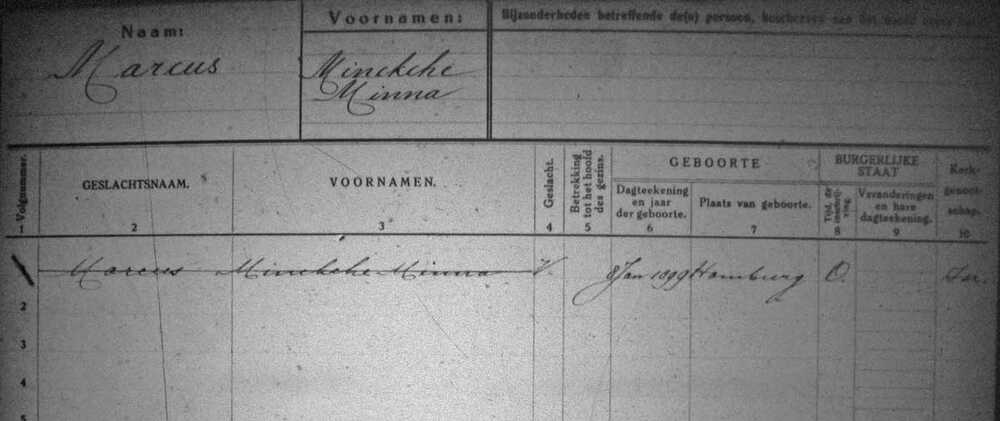 Naam:
Marcus
Voornamen:
Minckche
Minna
Bijzonderheden betreffende de(n) persoon, beschreven aan het hoofd
Volgnummer.
GESLACHTSNAAM.
VOORNAMEN.
Geslacht.
Betrekking
tot het hoofd
des gezins.
GEBOORTE
Dagteekening
en jaar
der geboorte.
Plaats van geboorte.
BURGERLIJKE
STAAT
Tijd. de
inschrij-
ving.
Veranderingen
en hare
dagteekening.
Kerk-
genoot-
schap.
1 2 3 4 5 6 7 8 9 10
1 Marcus Minckche Minna V. 8 Jan 1899 Hamburg O. Isr.
2
3
4
5